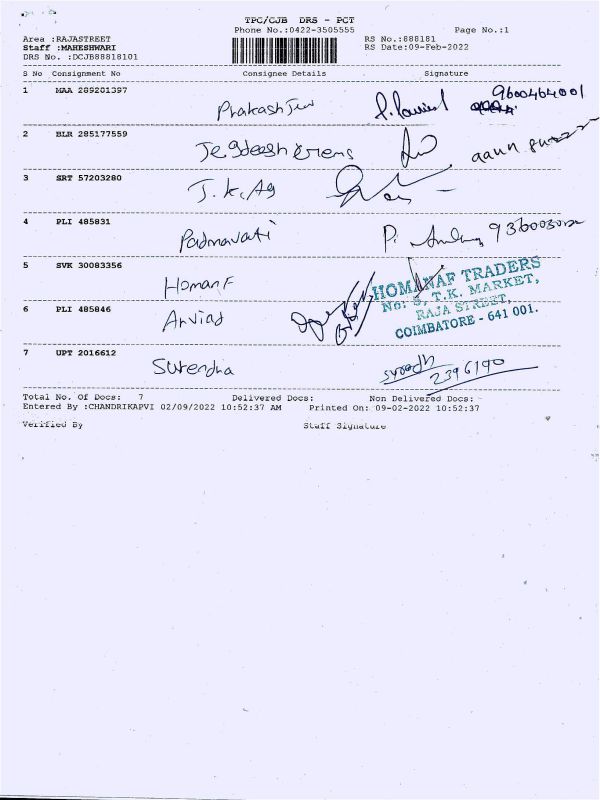 TPC/CJB DRS - PCT
Phone No.:0422-3505555 Page No.:1
Area :RAJASTREET RS No.:888181
Staff :MAHESHWARI RS Date:09-Feb-2022
DRS No. :DCJB88818101
S No Consignment No Consignee Details Signature
1 MAA 289201397 9600464001
Prakash
2 BLR 285177559
Jegdeesh
3 SRT 57203280
J.K. Ag
4 PLI 485831
Padmavati P.
5 SVK 30083356
Homanf
HOMANAF TRADERS
No: 3, T.K. MARKET,
RAJA STREET,
COIMBATORE - 641 001.
6 PLI 485846
Arviad
7 UPT 2016612
Surendha
suresh
2396190
Total No. Of Docs: 7 Delivered Docs: Non Delivered Docs:
Entered By :CHANDRIKAPVI 02/09/2022 10:52:37 AM Printed On: 09-02-2022 10:52:37
Verified By Staff Signature